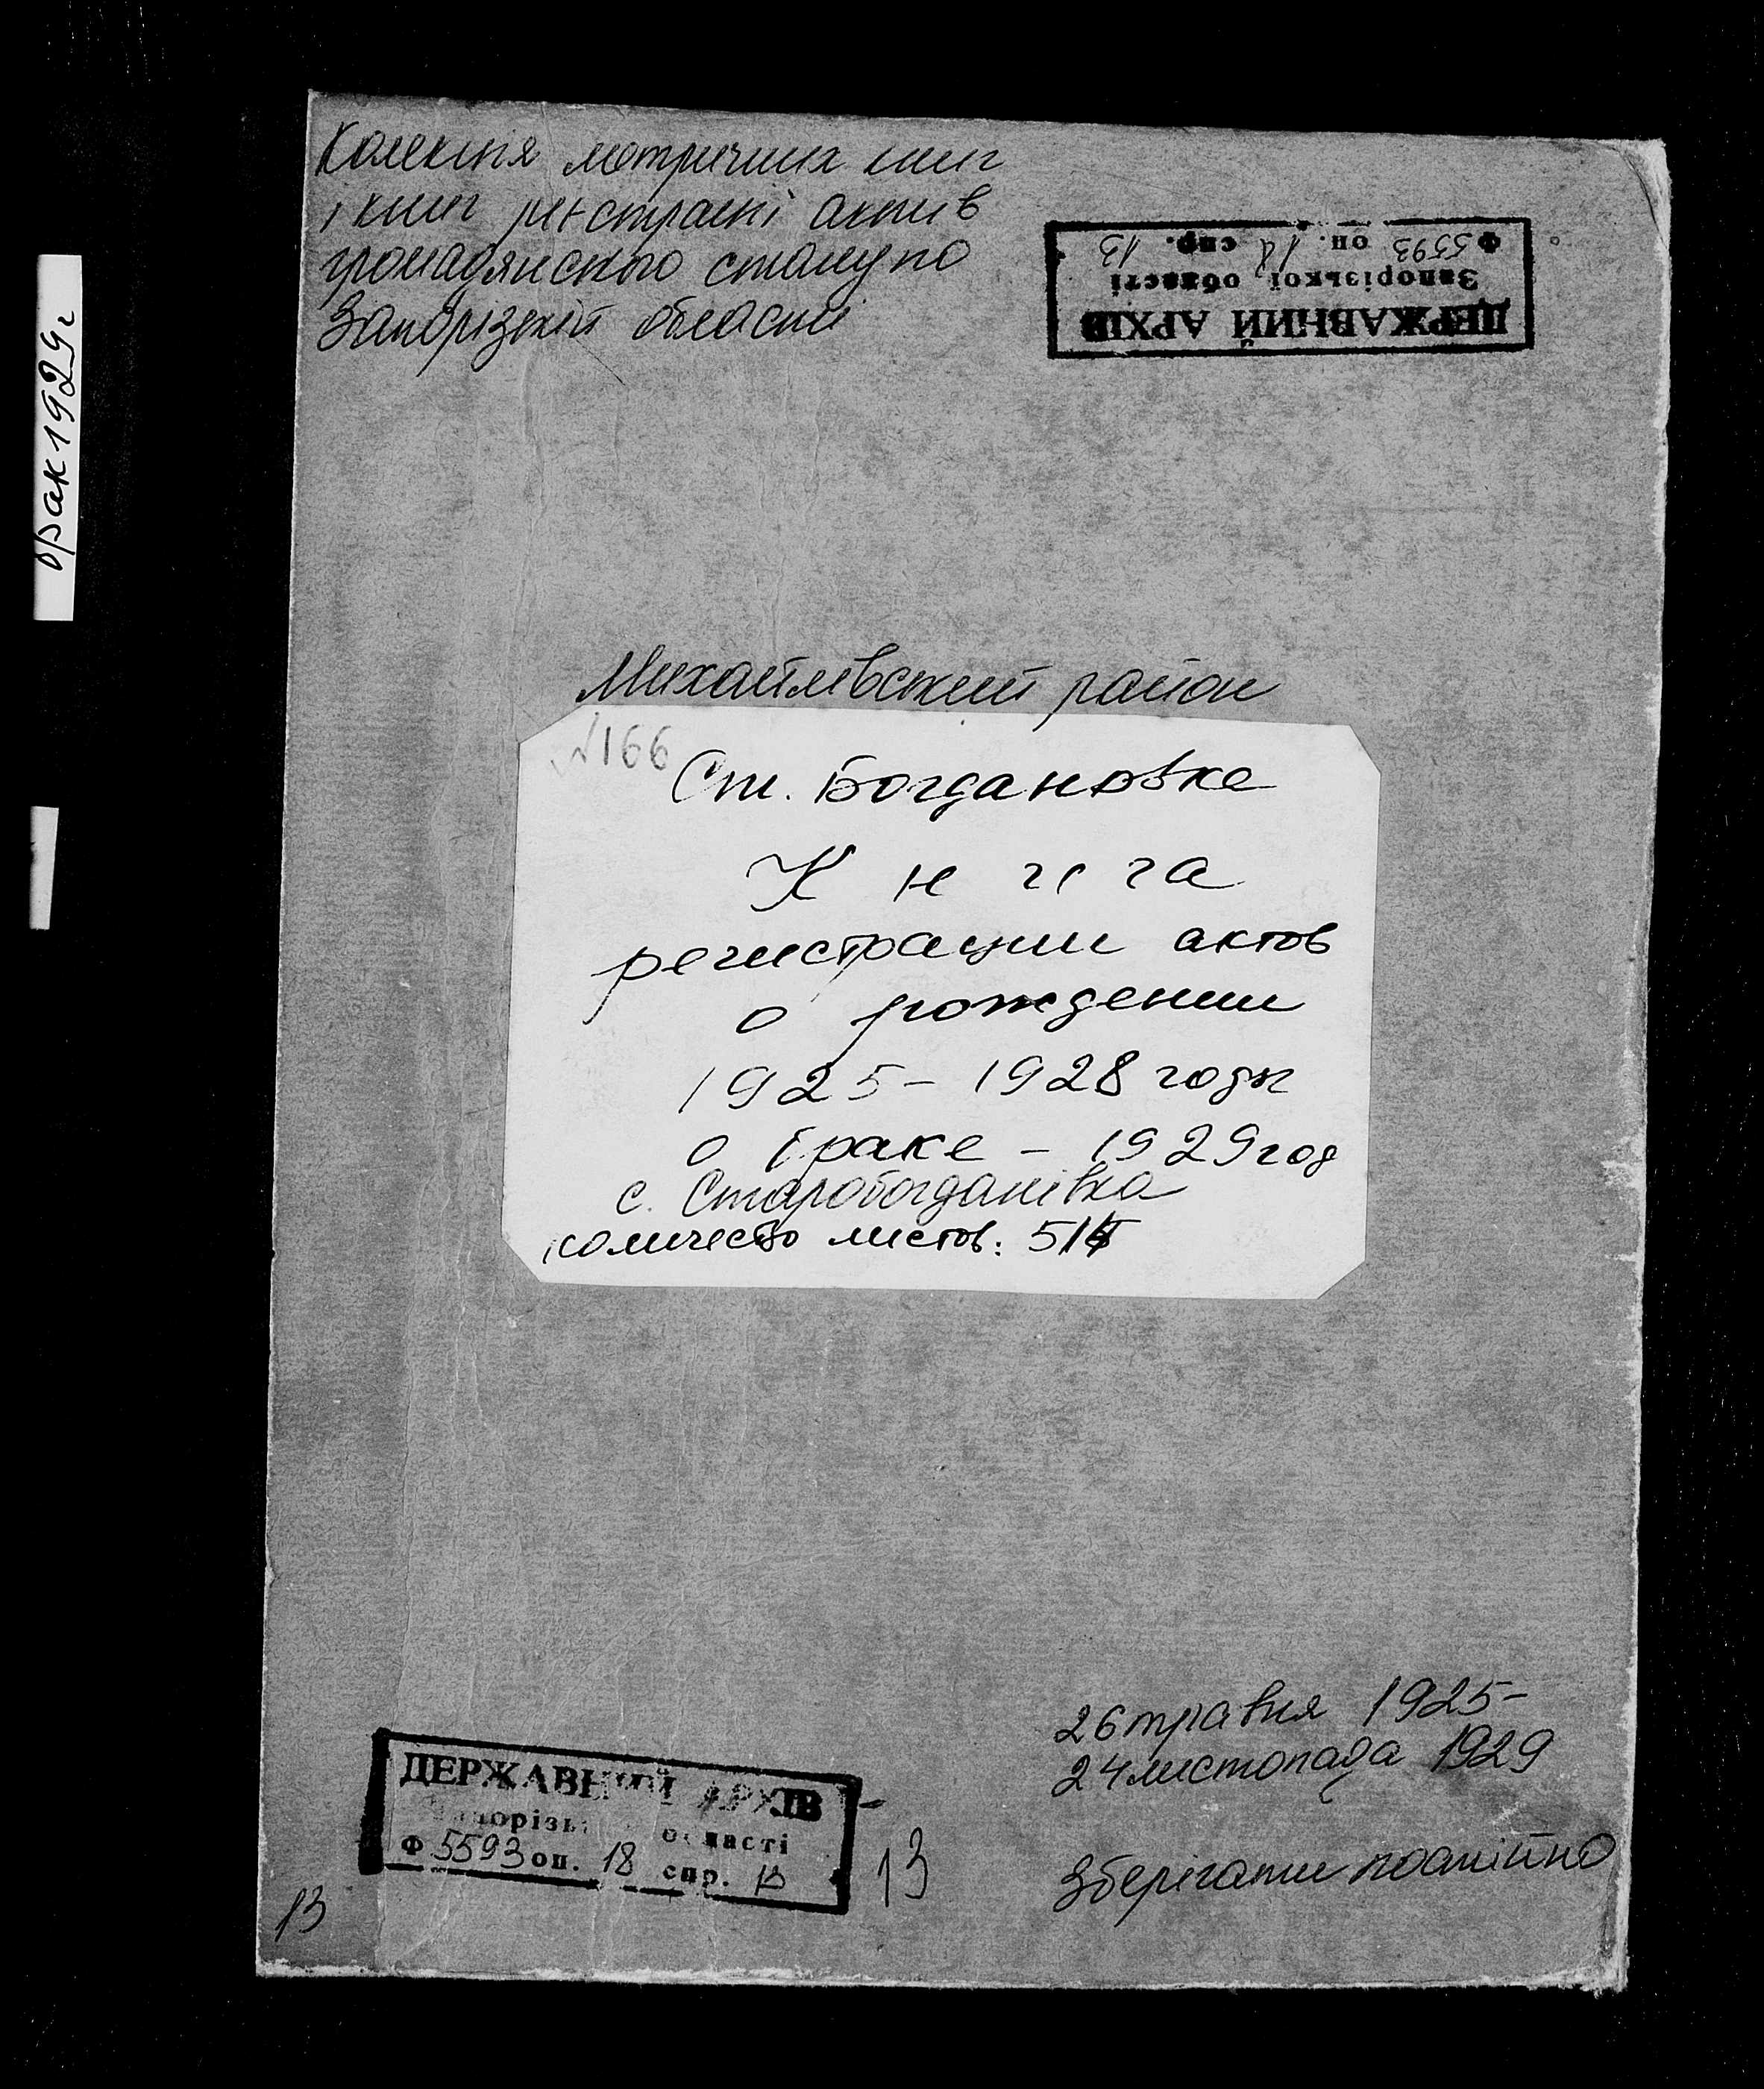 Колекція метричних книг
і книг реєстрації актів
громадянського стану по
Запорізькій області
ДЕРЖАВНИЙ АРХІВ
Запорізької області
Ф 5593 оп. 18 спр. 13
брак 1929г
Михайлівський район
№166
Ст. Богдановка
Книга
регистрации актов
о рождении
1925 - 1928 годы
о браке - 1929 год
с. Старобогданівка
количество листов:
26 травня 1925-
24 листопада 1929
ДЕРЖАВНИЙ АРХІВ
Запорізької області
Ф 5593 оп. 18 спр. 13
13
Зберігати постійно
13